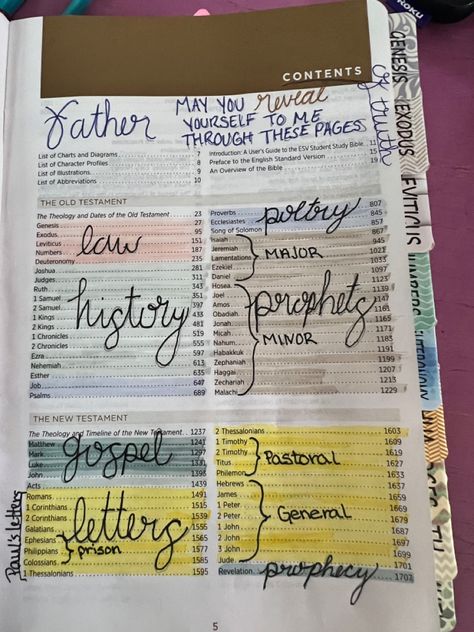 CONTENTS
Father MAY YOU reveal
YOURSELF TO ME
THROUGH THESE PAGES
of truth
List of Charts and Diagrams 7
List of Character Profiles 8
List of Illustrations 9
List of Abbreviations 10
Introduction: A User's Guide to the ESV Student Study Bible 11
Preface to the English Standard Version 15
An Overview of the Bible 19
THE OLD TESTAMENT
The Theology and Dates of the Old Testament 23
Genesis 27
Exodus 95
Leviticus 151
Numbers 187
Deuteronomy 235
law
Joshua 281
Judges 311
Ruth 343
1 Samuel 351
2 Samuel 397
1 Kings 433
2 Kings 481
1 Chronicles 519
2 Chronicles 555
Ezra 597
Nehemiah 613
Esther 635
history
Job 647
Psalms 689
Proverbs 807
Ecclesiastes 845
Song of Solomon 857
poetry
Isaiah 867
Jeremiah 945
Lamentations 1021
Ezekiel 1033
Daniel 1097
MAJOR
Hosea 1123
Joel 1139
Amos 1147
Obadiah 1161
Jonah 1165
Micah 1171
Nahum 1183
Habakkuk 1191
Zephaniah 1199
Haggai 1207
Zechariah 1213
Malachi 1229
prophets
MINOR
THE NEW TESTAMENT
The Theology and Timeline of the New Testament 1237
Matthew 1241
Mark 1297
Luke 1331
John 1393
gospel
Acts 1439
Romans 1491
1 Corinthians 1515
2 Corinthians 1539
Galatians 1555
Ephesians 1565
Philippians 1577
Colossians 1585
1 Thessalonians 1595
letters
prison
Paul's letters
2 Thessalonians 1603
1 Timothy 1609
2 Timothy 1619
Titus 1627
Philemon 1633
Pastoral
Hebrews 1637
James
1 Peter
2 Peter
1 John
2 John
3 John
Jude
1657
1667
1679
1687
1697
1699
1701
General
Revelation 1707
prophecy
5
GENESIS
EXODUS
LEVITICUS
NUMBERS
ROKU